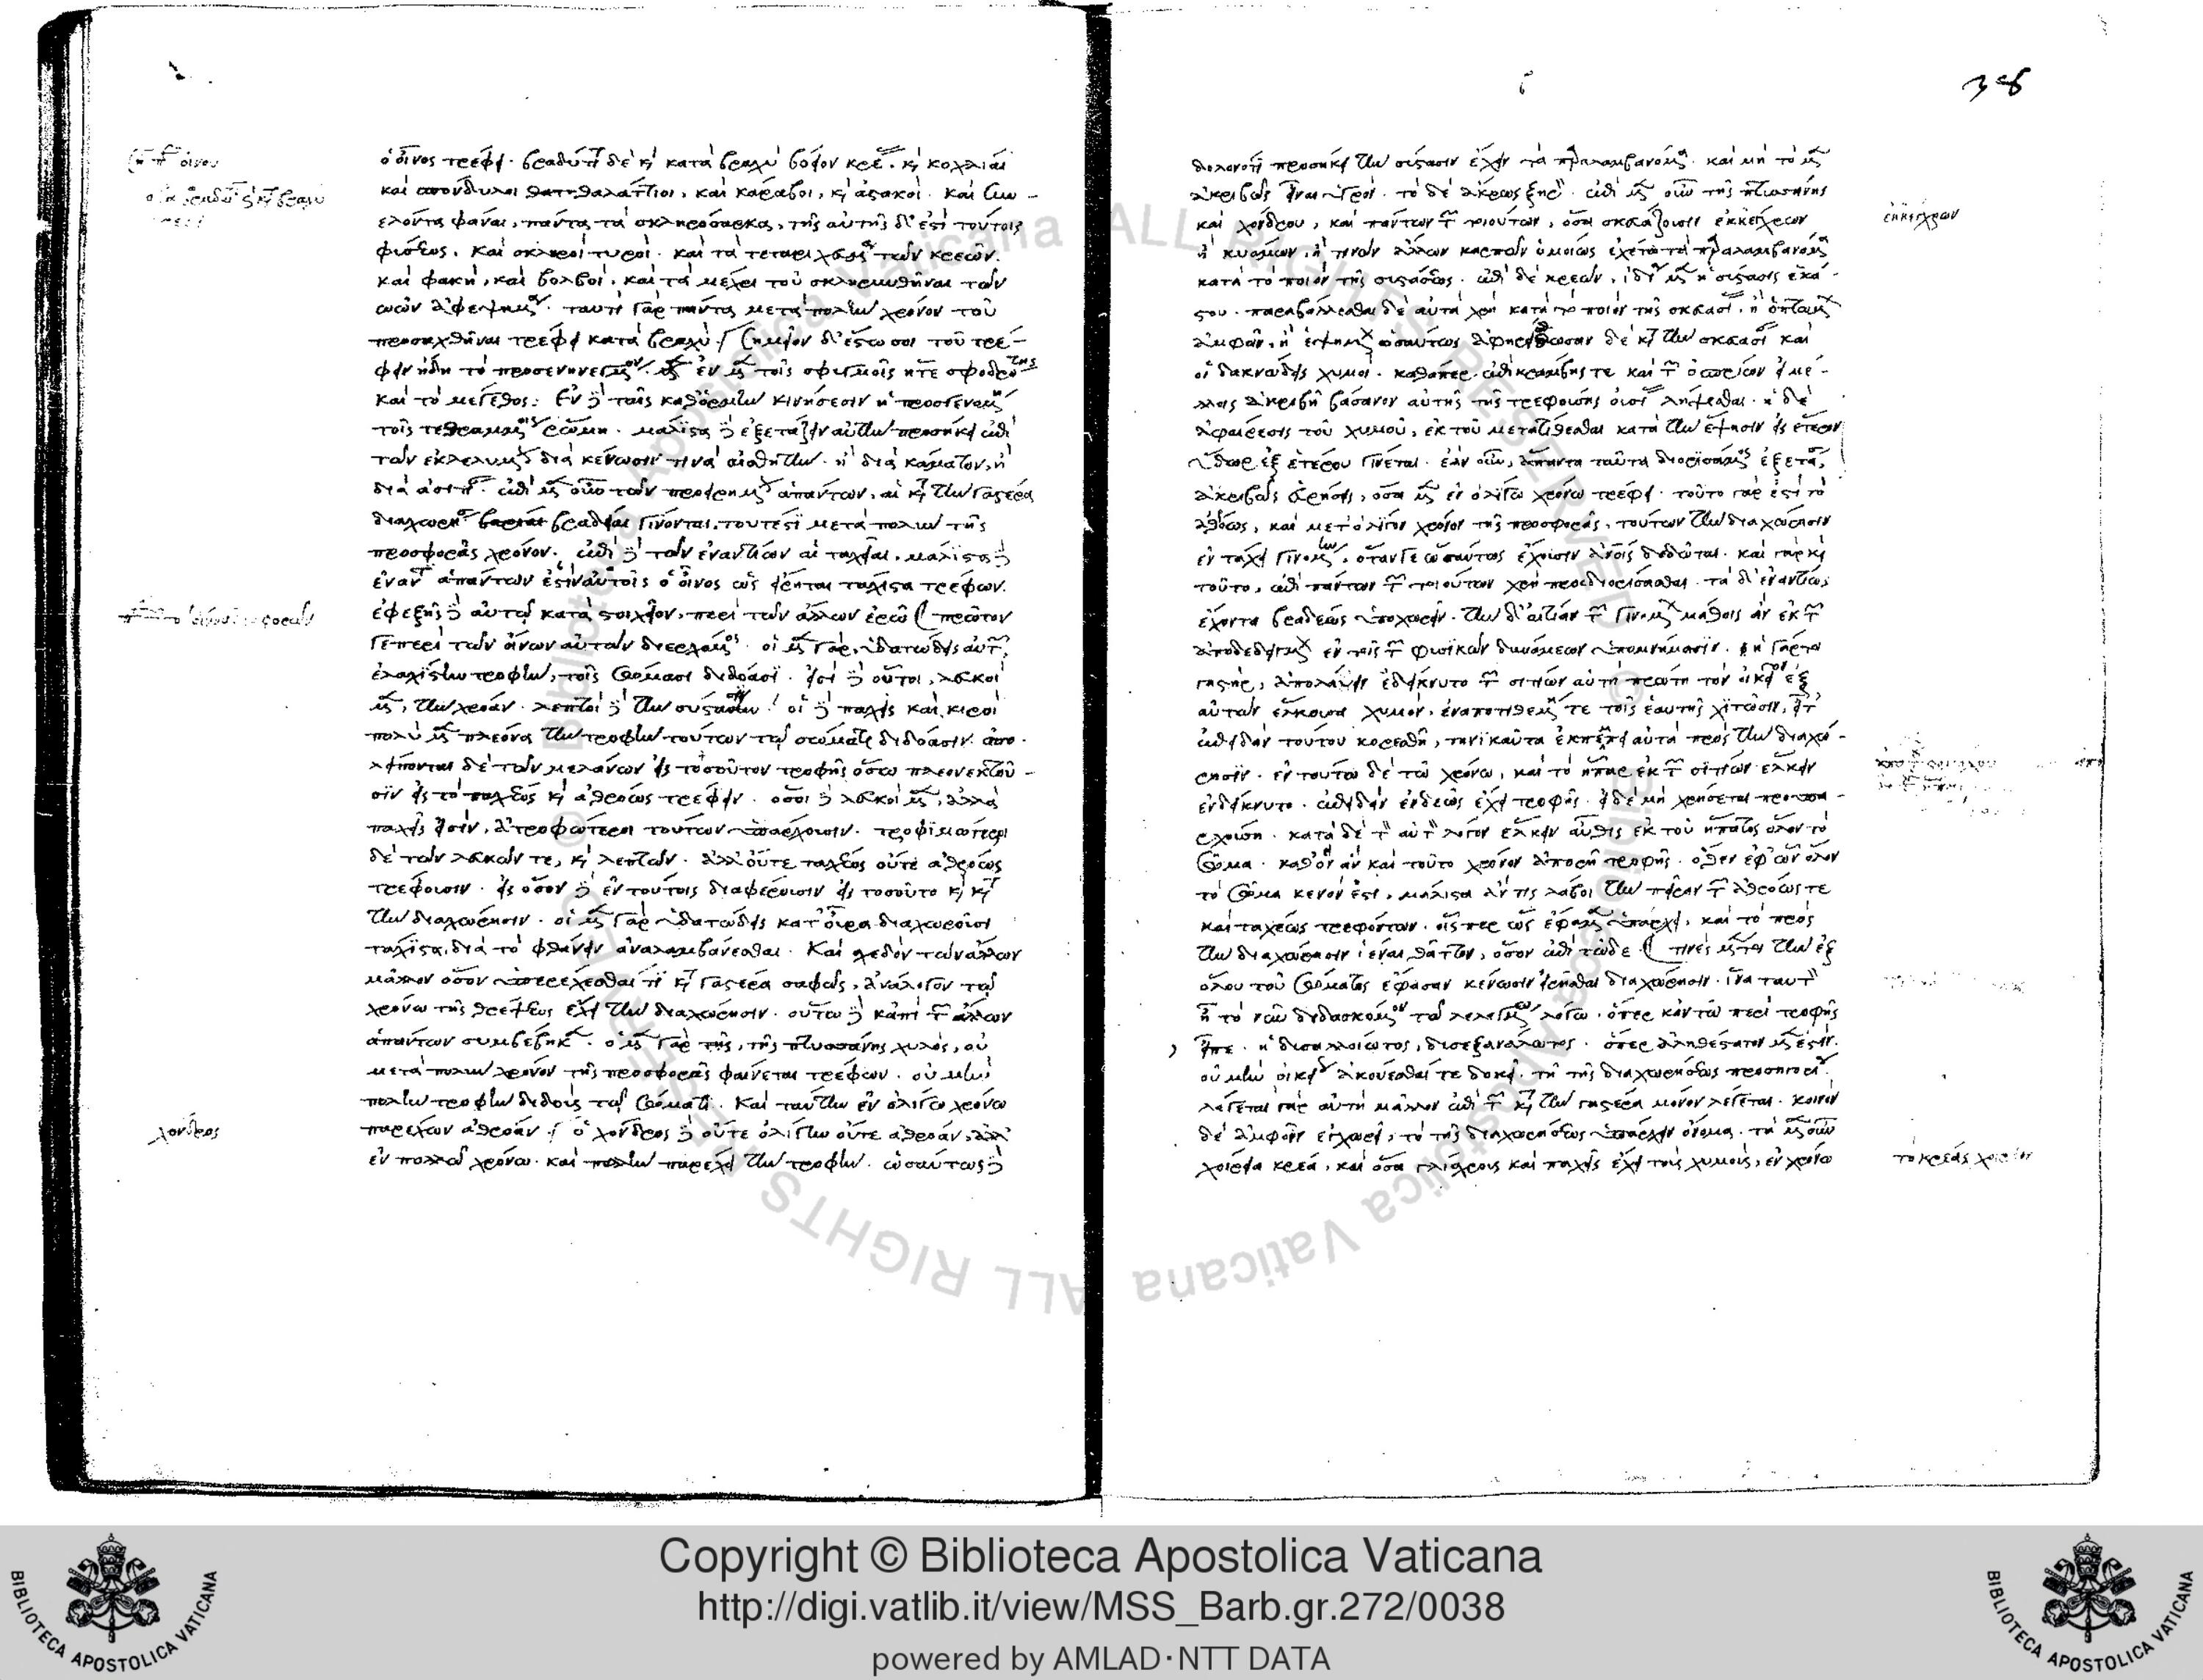 ὁ οἶνος τρέφει. βραδύτατα δὲ καὶ κατὰ βραχὺ βόειον κρέας. καὶ κοχλίαι
καὶ σπόνδυλοι θαλάττιοι, καὶ κάραβοι, καὶ ἀστακοί. καὶ συν-
ελόντα φάναι, πάντα τὰ σκληρόσαρκα, τῆς αὐτῆς δ' ἐστὶ τούτοις
φύσεως. καὶ σκληροὶ τυροί. καὶ τὰ τεταριχευμένα τῶν κρεῶν.
καὶ φακῆ, καὶ βολβοί. καὶ τὰ μέχρι τοῦ σκληρυνθῆναι τῶν
ὠῶν ἀφεψημένα. ταυτὶ γὰρ πάντα μετὰ πολὺν χρόνον τοῦ
προσαχθῆναι τρέφει κατὰ βραχύ. σημεῖον δ' ἔστω σοι τοῦ τρέ-
φειν ἤδη τὸ προσενηνεγμένον. ἐν μὲν τοῖς σφυγμοῖς ἥ τε σφοδρότης
καὶ τὸ μέγεθος. ἐν δὲ ταῖς καθ' ὁρμὴν κινήσεσιν ἡ προσγενομένη
τοῖς τεθραμμένοις ῥώμη. μάλιστα δὲ ἐξετάζειν αὐτὴν προσήκει ἐπὶ
τῶν ἐκλελυμένων διὰ κένωσιν τινὰ αἰσθητὴν. ἢ διὰ κάματον, ἢ
διὰ ἀσιτίαν. ἐπὶ μὲν οὖν τῶν προειρημένων ἁπάντων, αἱ κατὰ τὴν γαστέρα
διαχωρήσεις βραδεῖαι γίνονται. τουτέστι μετὰ πολὺν τῆς
προσφορᾶς χρόνον. ἐπὶ δὲ τῶν ἐναντίων αἱ ταχεῖαι. μάλιστα δὲ
ἐναντίος ἁπάντων ἐστὶν αὐτοῖς ὁ οἶνος ὡς εἴρηται τάχιστα τρέφων.
ἐφεξῆς δὲ αὐτῷ κατὰ στοιχεῖον, περὶ τῶν ἄλλων ἐρῶ πρῶτον
γε περὶ τῶν οἴνων αὐτῶν διερχόμενος. οἱ μὲν γὰρ ὑδατώδεις αὐτῶν,
ἐλαχίστην τροφὴν, τοῖς σώμασι διδόασι. εἰσὶ δὲ οὗτοι, λευκοὶ
μὲν, τὴν χρόαν. λεπτοὶ δὲ τὴν σύστασιν. οἱ δὲ παχεῖς καὶ κιρροὶ
πολὺ μὲν πλέονα τὴν τροφὴν τούτων τῷ σώματι διδόασιν. ἀπο-
λείπονται δὲ τῶν μελάνων εἰς τοσοῦτον τροφῆς ὅσῳ πλεονεκτοῦ-
σιν εἰς τὸ ταχέως καὶ ἀθρόως τρέφειν. ὅσοι δὲ λευκοὶ μὲν, ἀλλὰ
παχεῖς εἰσίν, ἀτροφώτεροι τούτων ὑπάρχουσιν. τροφιμώτεροι
δὲ τῶν λευκῶν τε, καὶ λεπτῶν. ἀλλ' οὔτε ταχέως οὔτε ἀθρόως
τρέφουσιν. εἰς ὅσον δὲ ἐν τούτοις διαφέρουσιν εἰς τοσοῦτο καὶ κατὰ
τὴν διαχώρησιν. οἱ μὲν γὰρ ὑδατώδεις κατ' οὖρα διαχωροῦσι
τάχιστα, διὰ τὸ φθάνειν ἀναλαμβάνεσθαι. καὶ σχεδὸν τῶν ἄλλων
μᾶλλον ὅσον ὑπέρχεσθαί τι κατὰ γαστέρα σαφῶς, ἀνάλογον τῷ
χρόνῳ τῆς θρέψεως ἔχει τὴν διαχώρησιν. οὕτω δὲ κἀπὶ τῶν ἄλλων
ἁπάντων συμβέβηκε. ὁ μὲν γὰρ τῆς πτισσάνης χυλὸς, οὐ
μετὰ πολὺν χρόνον τῆς προσφορᾶς φαίνεται τρέφων. οὐ μὴν
πολλὴν τροφὴν διδοὺς τῷ σώματι. καὶ ταύτην ἐν ὀλίγῳ χρόνῳ
παρέχων ἀθρόαν. ὁ χόνδρος δὲ οὔτε ὀλίγην οὔτε ἀθρόαν, ἀλλ'
ἐν πολλῷ χρόνῳ. καὶ πολλὴν παρέχει τὴν τροφήν. ὡσαύτως δὲ
χόνδρος
δηλονότι προσήκει τὴν σύστασιν ἔχειν τὰ παραλαμβανόμενα. καὶ μὴ τὸ μὲν
ἀκριβῶς εἶναι ὑγρόν. τὸ δὲ ἄκρως ξηρόν. ἐπὶ μὲν οὖν τῆς πτισσάνης
καὶ χόνδρου, καὶ πάντων τῶν τοιούτων, ὅσα σκευάζουσιν ἐκ κέγχρων
ἢ κυάμων, ἢ τινων ἄλλων καρπῶν ὁμοίως ἐχέτω τὰ παραλαμβανόμενα
κατὰ τὸ ποιὸν τῆς συστάσεως. ἐπὶ δὲ κρεῶν, ἰδία μὲν ἡ σύστασις ἑκά-
στου. παραβάλλεσθαι δὲ αὐτὰ χρὴ κατὰ τὸ ποιὸν τῆς σκευασίας, ἢ ὀπτῶν
ἄμφω, ἢ ἑψημένων ὡσαύτως ἀφῃρήσθωσαν δὲ κατὰ τὴν σκευασίαν καὶ
οἱ δακνώδεις χυμοί. καθάπερ ἐπὶ κράμβης τε καὶ τῶν ὀσπρίων εἰ μέλ-
λοις ἀκριβῆ βάσανον αὐτῆς τῆς τρεφούσης οὐσίας λήψεσθαι. ἡ δὲ
ἀφαίρεσις τοῦ χυμοῦ, ἐκ τοῦ μετατίθεσθαι κατὰ τὴν ἕψησιν εἰς ἕτερον
ὕδωρ ἐξ ἑτέρου γίνεται. ἐὰν οὖν, ἅπαντα ταῦτα διορισάμενος ἐξετάσῃς,
ἀκριβῶς εὑρήσεις, ὅσα μὲν ἐν ὀλίγῳ χρόνῳ τρέφει. τοῦτο γὰρ ἐστὶ τὸ
ἀθρόως, καὶ μετ' ὀλίγον χρόνον τῆς προσφορᾶς, τούτων τὴν διαχώρησιν
ἐν τάχει γινομένην, ὅταν γε ὡσαύτως ἔχουσιν αὐτοῖς διδῶται. καὶ γὰρ καὶ
τοῦτο, ἐπὶ πάντων τῶν τοιούτων χρὴ προσδιορίσασθαι. τὰ δ' ἐναντίως
ἔχοντα βραδέως ὑποχωρεῖν. τὴν δ' αἰτίαν τῶν γινομένων μάθοις ἂν ἐκ τῶν
ἀποδεδειγμένων ἐν τοῖς τῶν φυσικῶν δυνάμεων ὑπομνήμασιν. ἡ γὰρ τοι
γαστὴρ, ἀπολαύειν ἐδείκνυτο τῶν σιτίων αὐτὴ πρώτη τὸν οἰκεῖον ἐξ
αὐτῶν ἕλκουσα χυμὸν, ἐναποτιθεμένη τε τοῖς ἑαυτῆς χιτῶσιν, εἶτ'
ἐπειδὰν τούτου κορεσθῇ, τηνικαῦτα ἐκπέμπει αὐτὰ πρὸς τὴν διαχώ-
ρησιν. ἐν τούτῳ δὲ τῷ χρόνῳ, καὶ τὸ ἧπαρ ἐκ τῶν σιτίων ἕλκειν
ἐδείκνυτο. ἐπειδὰν ἐνδεῶς ἔχῃ τροφῆς.
σῶμα. καθ' ὃν ἂν καὶ τοῦτο χρόνον ἀπορῇ τροφῆς. ὅθεν ἐφ' ὧν ὅλον
τὸ σῶμα κενόν ἐστι, μάλιστα ἄν τις λάβοι τὴν πεῖραν τῶν ἀθρόως τε
καὶ ταχέως τρεφόντων. οἷσπερ ὡς ἔφαμεν ὑπάρχει, καὶ τὸ πρὸς
τὴν διαχώρησιν ἰέναι θᾶττον, ὅσον ἐπὶ τῷδε. τινὲς μέντοι τὴν ἐξ
ὅλου τοῦ σώματος ἔφασαν κένωσιν εἰρῆσθαι διαχώρησιν. ἵνα ταυτὸν
ᾖ τὸ νῦν διδασκόμενον τῷ λελεγμένῳ λόγῳ. ὅπερ κἀν τῷ περὶ τροφῆς
εἶπε. ἡ δυσαλλοίωτος, δυσεξανάλωτος. ὅπερ ἀληθέστατον μέν ἐστιν.
οὐ μὴν οἰκεῖον ἀκούεσθαί τε δοκεῖ. τῇ τῆς διαχωρήσεως προσηγορίᾳ.
λέγεται γὰρ αὐτὴ μᾶλλον ἐπὶ τῶν κατὰ τὴν γαστέρα μόνον λέγεται. κοινὸν
δὲ ἀμφοῖν ἐγχωρεῖ, τὸ τῆς διαχωρήσεως ὑπάρχειν ὄνομα. τὰ μὲν οὖν
χοίρεια κρέα, καὶ ὅσα γλίσχρους καὶ παχεῖς ἔχει τοὺς χυμοὺς, ἐν χρόνῳ
ἐκ κέγχρων
τὸ κρέας χοίρειον
Copyright © Biblioteca Apostolica Vaticana
http://digi.vatlib.it/view/MSS_Barb.gr.272/0038
powered by AMLAD·NTT DATA
BIBLIOTECA APOSTOLICA VATICANA
BIBLIOTECA APOSTOLICA VATICANA